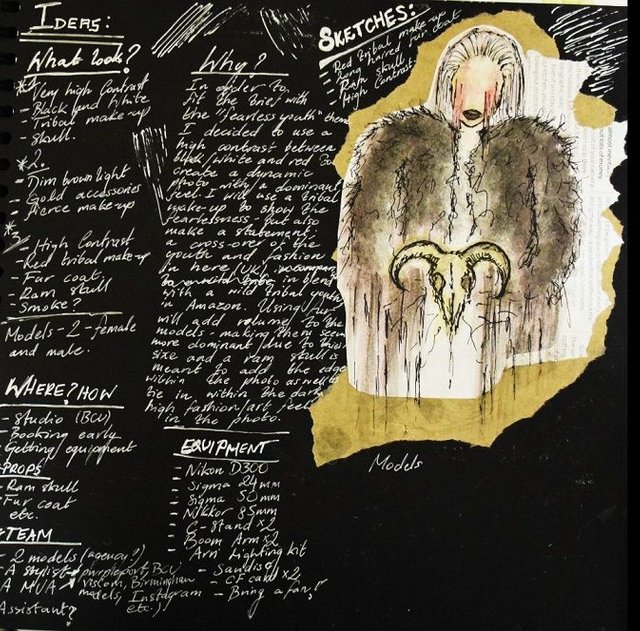 IDEAS:
What look?
*1.
Very high contrast
- Black and White
- Tribal make-up
- Skull.
*2.
- Dim brown light
- Gold accessories
- Fierce make-up
*3
- High Contrast
- Red tribal make-up
- Fur coat,
- Ram skull
- Smoke?
Models - 2 - female
and male.
WHERE? HOW
- Studio (BCU)
- Booking early
- Getting equipment
PROPS
- Ram skull
- Fur coat
etc.
TEAM
- 2 models (agency?)
- A stylist - purpleport, BCU
A MUA viscom, Birmingham
models, Instagram
etc.)
Assistant?
Why?
In order to
fit the brief with
the "fearless youth" then
I decided to use a
high contrast between
black/white and red to
create a dynamic
photo with a dominant
feel. I will use a tribal
make-up to show the
fearlessness but also
make a statement;
a cross-over of the
youth and fashion
in here (UK)
in blend
with wild tribal youth
in Amazon. Using fur
will add volume to the
models making them seem
more dominant due to their
size and a ram skull is
meant to add the edge
within the photo as well as
tie in within the dark
high fashion/art feel
in the photo.
EQUIPMENT
- Nikon D300
- Sigma 24mm
- Sigma 50mm
- Nikkor 85mm
- C-stand x2
- Boom Arm x2
- Arri Lighting kit
- Sandisc
CF card x2
- Bring a fan!
SKETCHES:
- Red tribal make-up
- Long haired fur coat
- Ram skull
- High Contrast
Models